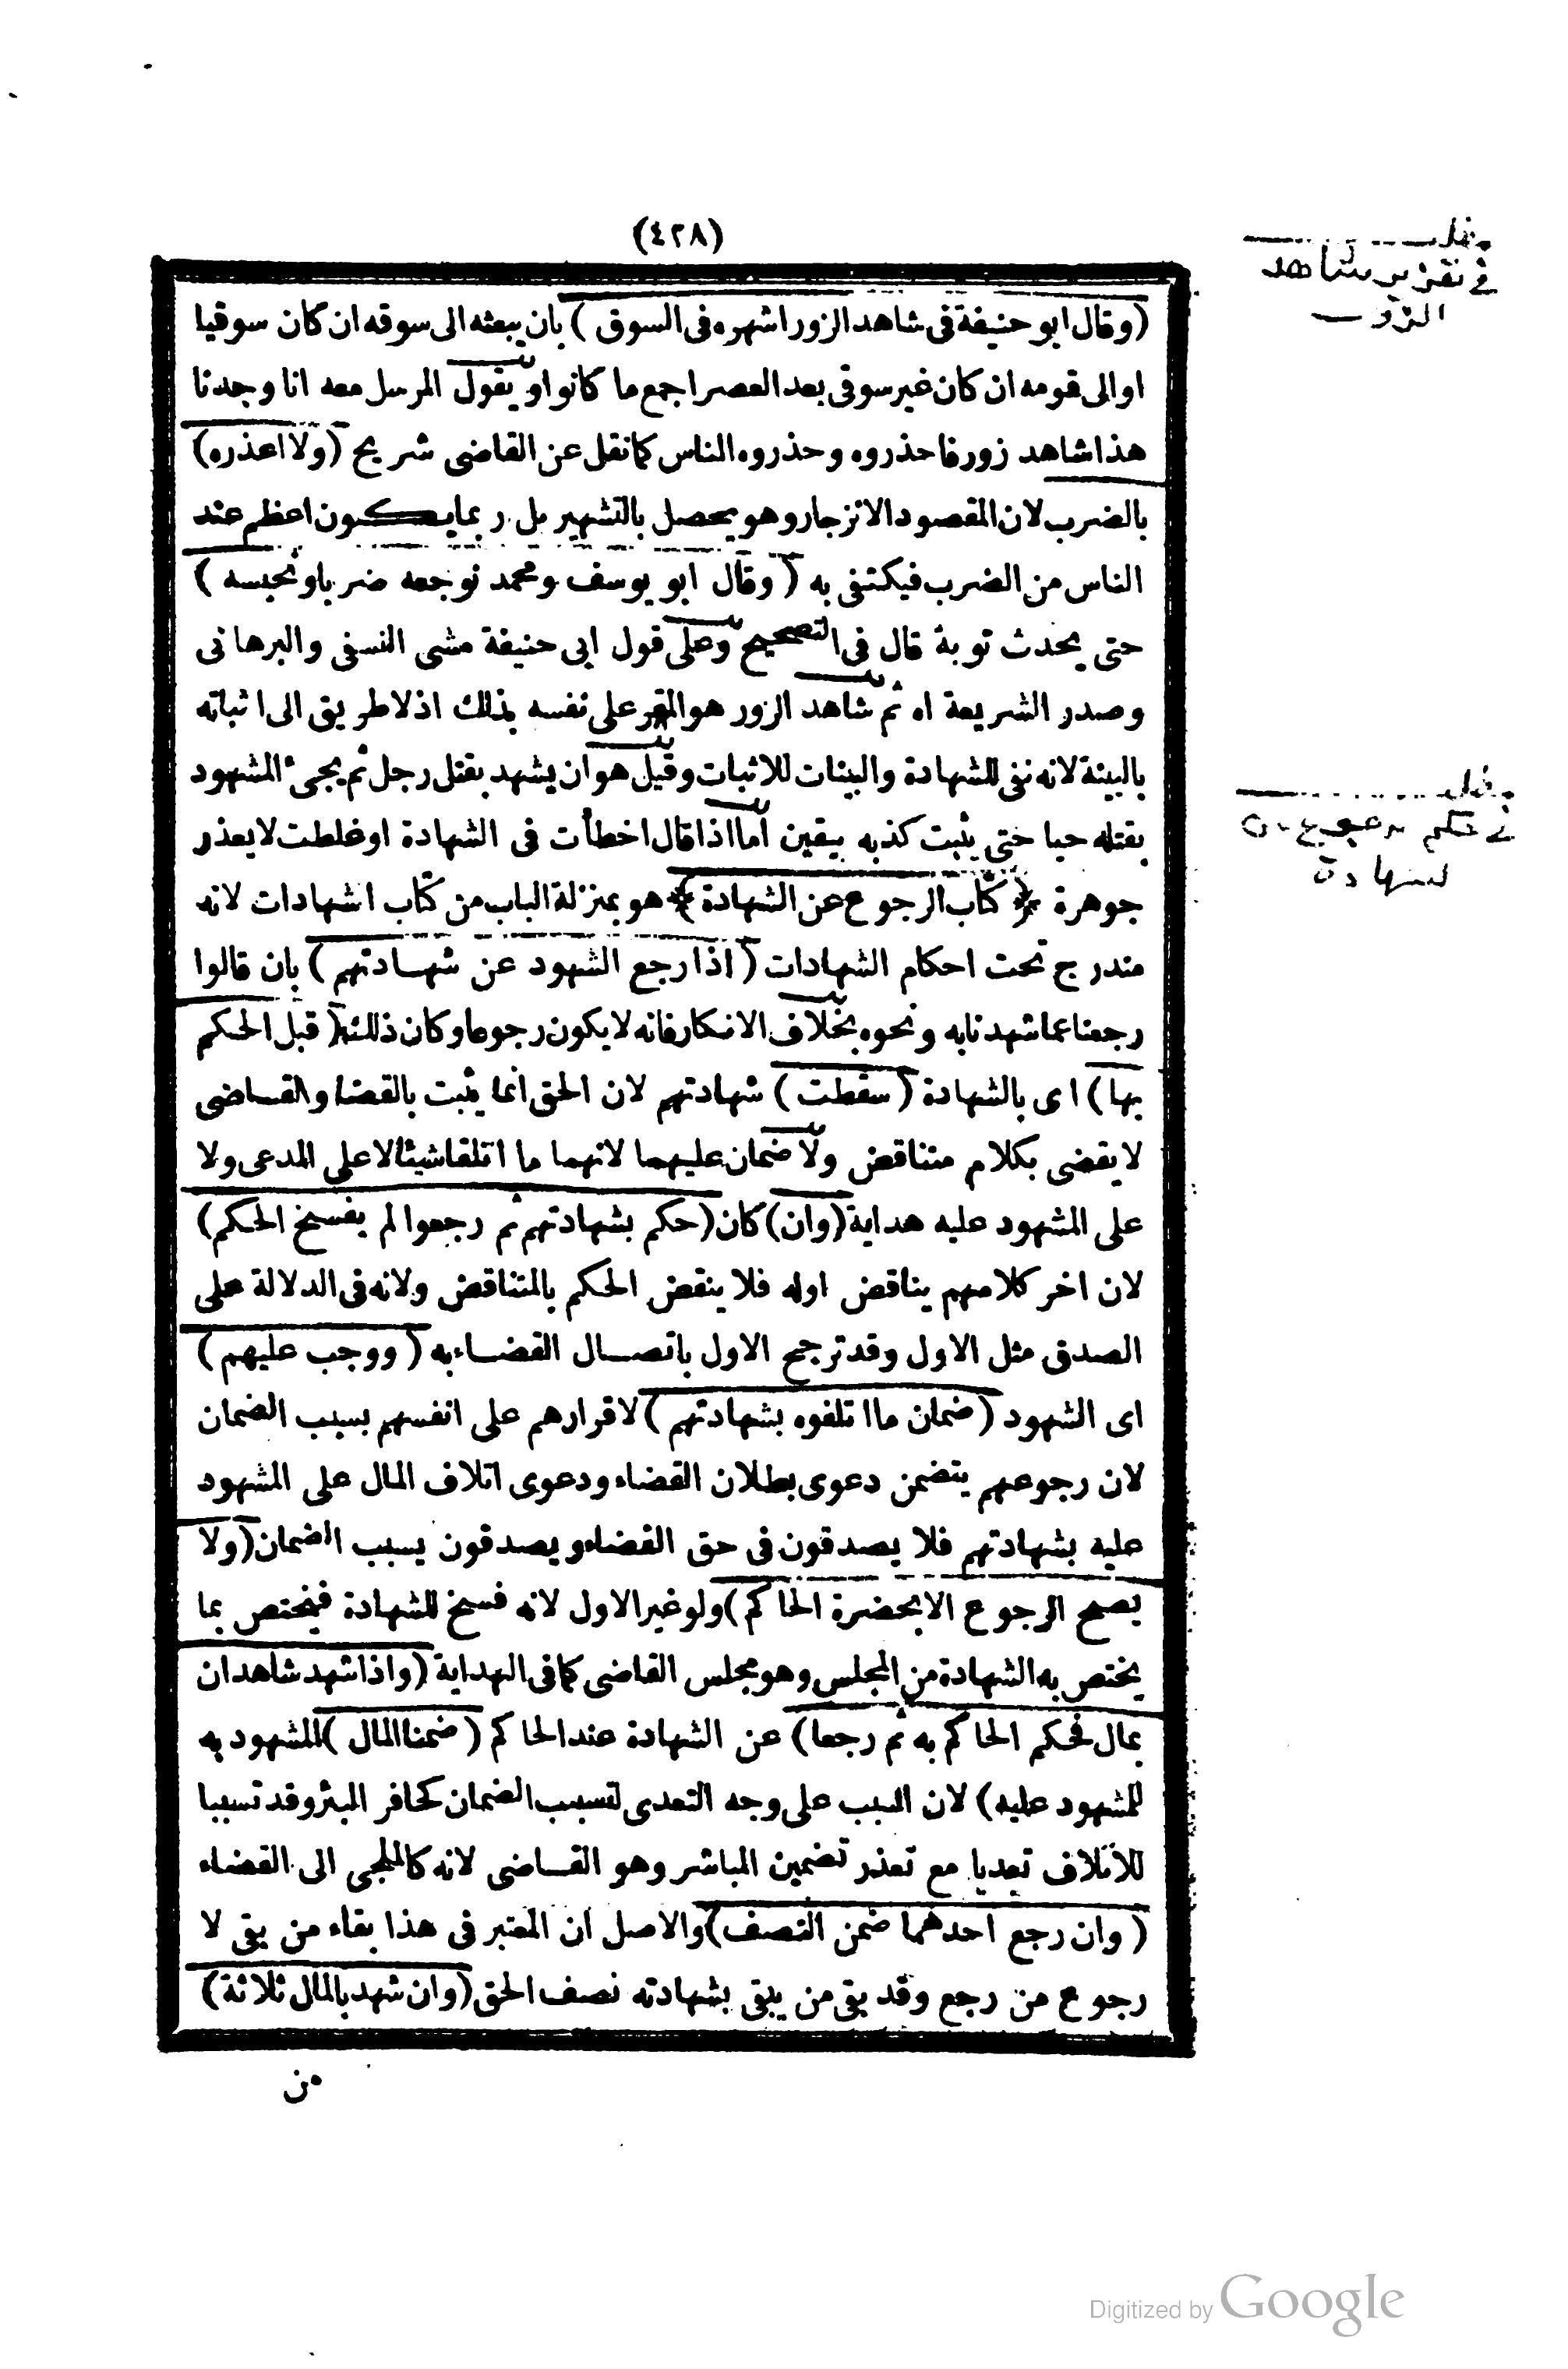 (٤٢٨)
(وقال ابو حنيفة فى شاهد الزور اشهره فى السوق) بان يبعثه الى سوقه ان كان سوقيا
او الى قومه ان كان غير سوقى بعد العصر اجمع ما كانوا ويقول المرسل معه انا وجدنا
هذا شاهد زور فاحذروه وحذروه الناس كما نقل عن القاضى شريح (ولا اعذره)
بالضرب لان المقصود الانزجار وهو يحصل بالتشهير بل ربما يكون اعظم عند
الناس من الضرب فيكتفى به (وقال ابو يوسف ومحمد نوجعه ضربا ونحبسه)
حتى يحدث توبة قال فى التصحيح وعلى قول ابى حنيفة مشى النسفى والبرهانى
وصدر الشريعة اه ثم شاهد الزور هو المقر على نفسه بذلك اذ لا طريق الى اثباته
بالبينة لانه نفى للشهادة والبينات للاثبات وقيل هو ان يشهد بقتل رجل ثم يجىء المشهود
بقتله حيا حتى يثبت كذبه بيقين اما اذا قال اخطأت فى الشهادة او غلطت لا يعذر
جوهرة ﴿ كتاب الرجوع عن الشهادة ﴾ هو بمنزلة الباب من كتاب اشهادات لانه
مندرج تحت احكام الشهادات (اذا رجع الشهود عن شهادتهم) بان قالوا
رجعنا عما شهدنا به ونحوه بخلاف الانكار فانه لا يكون رجوعا وكان ذلك (قبل الحكم
بها) اى بالشهادة (سقطت) شهادتهم لان الحق انما يثبت بالقضا والقاضى
لا يقضى بكلام متناقض ولا ضمان عليهما لانهما ما اتلفا شيئا لا على المدعى ولا
على المشهود عليه هداية (وان) كان (حكم بشهادتهم ثم رجعوا لم يفسخ الحكم)
لان اخر كلامهم يناقض اوله فلا ينقض الحكم بالمتناقض ولانه فى الدلالة على
الصدق مثل الاول وقد ترجح الاول باتصال القضاء به (ووجب عليهم)
اى الشهود (ضمان ما اتلفوه بشهادتهم) لاقرارهم على انفسهم بسبب الضمان
لان رجوعهم يتضمن دعوى بطلان القضاء ودعوى اتلاف المال على المشهود
عليه بشهادتهم فلا يصدقون فى حق القضاء ويصدقون بسبب الضمان (ولا
يصح الرجوع الا بحضرة الحاكم) ولو غير الاول لانه فسخ للشهادة فيختص بما
يختص به الشهادة من المجلس وهو مجلس القاضى كما فى الهداية (واذا شهد شاهدان
بمال فحكم الحاكم به ثم رجعا) عن الشهادة عند الحاكم (ضمنا المال) المشهود به
للمشهود عليه) لان السبب على وجه التعدى لتسبب الضمان كحافر البئر وقد تسببا
للاتلاف تعديا مع تعذر تضمين المباشر وهو القاضى لانه كالملجى الى القضاء
(وان رجع احدهما ضمن النصف) والاصل ان المعتبر فى هذا بقاء من بقى لا
رجوع من رجع وقد بقى من يبقى بشهادته نصف الحق (وان شهد بالمال ثلاثة)
من
فى تعزير شاهد
الزور
Digitized by Google